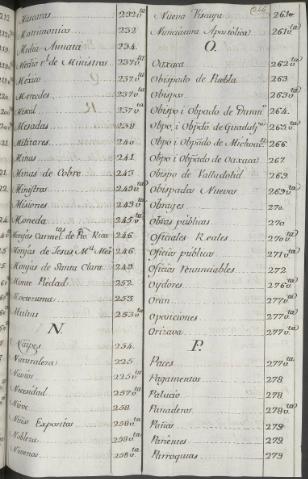 Mascaras 232 vta
Matrimonios 232
Media Annata 234
Mexico 237 vta
Mercedes 237 vta
Mesadas 239
Militares 240
Minas 241
Minas de Cobre 243
Ministros 243 vta
Misiones 249 vta
Moneda 245 vta
Monjas de Santa Clara 249
Monte Piedad 252
Multas 253 vta
N.
Naipes 254
Naturaleza 225
Navios 225 vta
Necesidad 257 vta
Nieve 258
Niños Expositos 258 vta
Nobleza 258 vta
Nueva Vizcaya 261
Nunciatura Apostolica 261 vta
O.
Oaxaca 262 vta
Obispado de Puebla 263
Obispos 263 vta
Obispo i Obpado de Durango 264
Obpo i Obpdo de Guadalaxa 265 vta
Obpo i Obpado de Michoacan 266
Obpo i Obpado de Oaxaca 267
Obispo de Valladolid 269
Obispados Nuevos 269 vta
Obrages 270
Obras públicas 270
Oficiales Reales 270 vta
Oficios públicos 271 vta
Oficios renunciables 272
Oydores 276 vta
Oran 277 vta
Oposiciones 277 vta
Orizava 277 vta
P.
Paces 277 vta
Pagamentos 278
Palacio 278
Panaderos 278 vta
Paños 279
Parientes 279
Parroquias 279